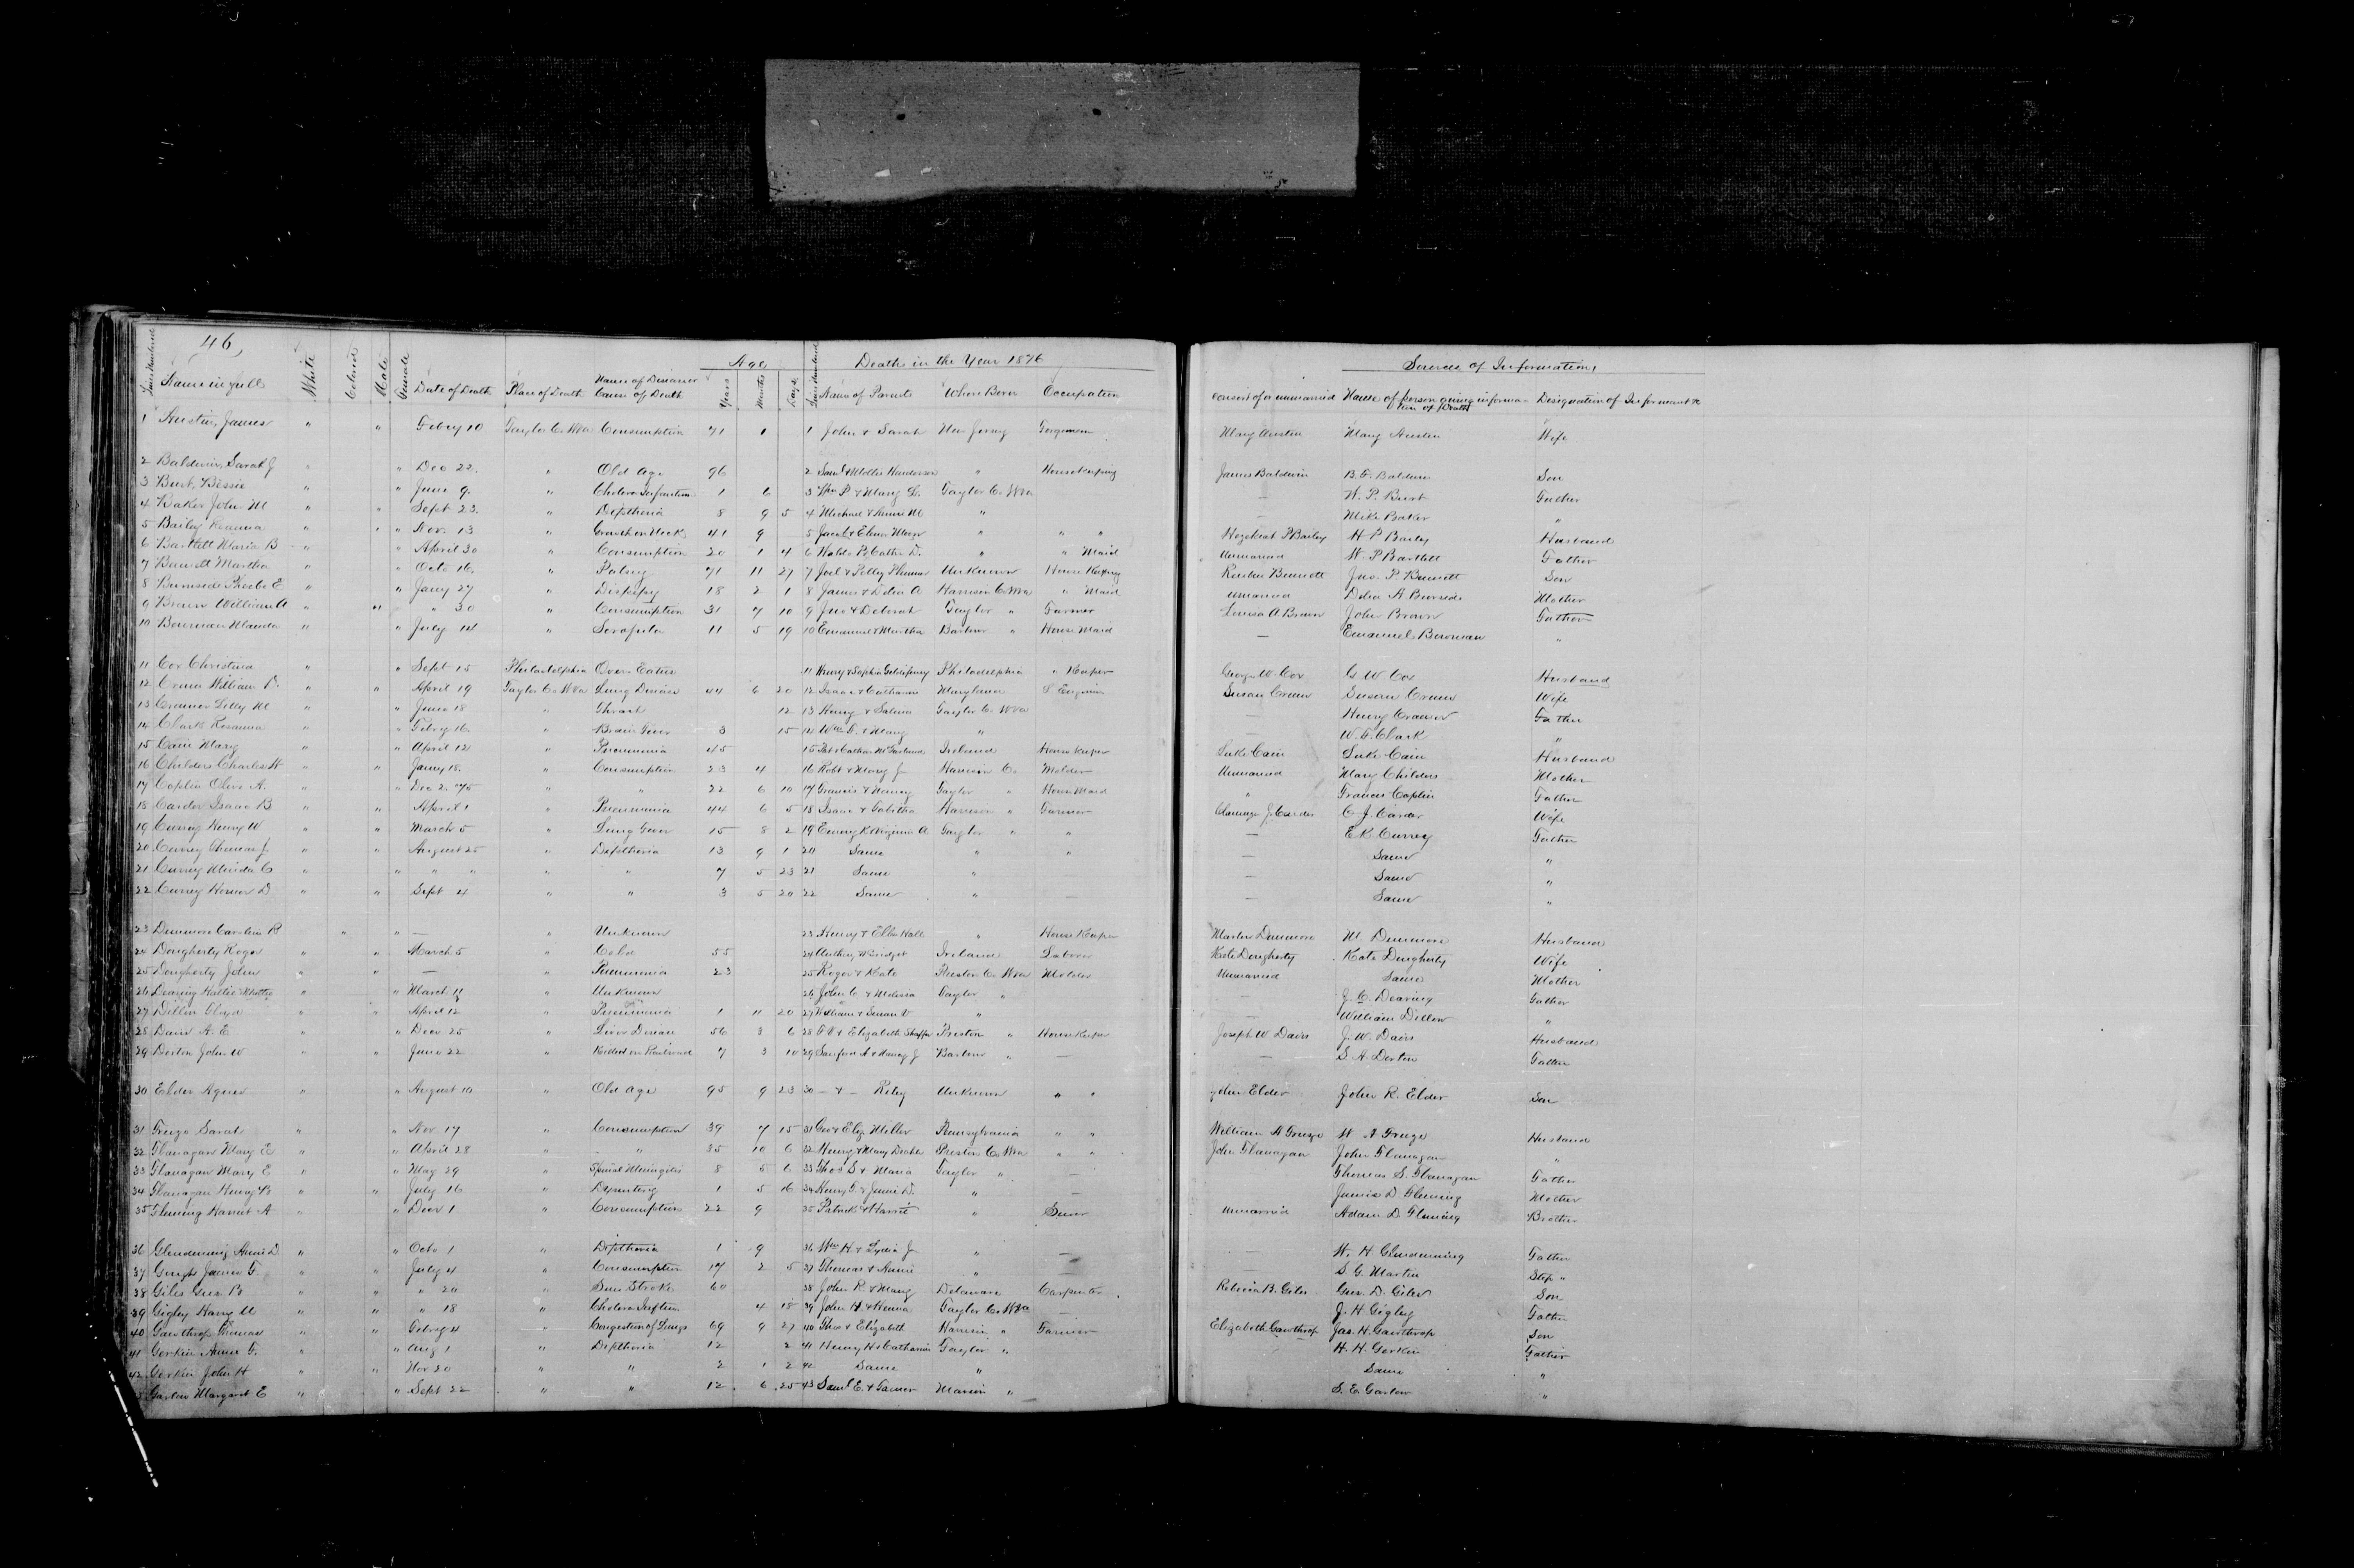 46,
Age Deaths in the Year 1876 Sources of Information,
Lines Numbered Name in full White Colored Male Female Date of Death Place of Death Name of Disease or Cause of Death Years Months Days Lines Numbered Name of Parents Where Born Occupation Consort of or unmarried Name of person giving information of Death Designation of Informant &c
1 Austin, James " " Febry 10 Taylor Co. Wva Consumption 71 1 1 John & Sarah New Jersey Mary Austin Mary Austin Wife
2 Baldwin, Sarah J " " Dec 22. " Old Age 96 2 Saml & Mollie Henderson " Housekeeping James Baldwin B. F. Baldwin Son
3 Burt, Bessie " " June 9. " Cholera Infantum 1 6 3 Wm P & Mary Taylor Co. Wva — W. P. Burt Father
4 Baker John M " " Sept 23. " Diptheria 8 9 5 4 Michael & M " — Mike Baker "
5 Bailey " " Nov. 13 " 41 9 5 Jacob & " " " Hezekiah P Bailey H P Bailey Husband
6 Bartlett Maria B " " April 30 " Consumption 20 1 4 6 " " Maid Unmarried W. P Bartlett Father
7 Bennett Martha " " Octo 16. " Palsy 71 11 27 7 Joel & Polly Unknown House Keeping Reuben Bennett Jno. P Bennett Son
8 Burnside Phoebe E " " Jany 27 " 18 2 1 8 James & Delia A Harrison Co Wva " Maid unmarried Delia A Burnside Mother
9 Brown William A " " " 30 " Consumption 31 7 10 9 Jno & Deborah Taylor " Farmer Louisa A. Brown John Brown Father
10 Bowman " " July 14 " Scrofula 11 5 19 10 Emanuel & Martha Barbour " House Maid — Emanuel Bowman "
11 Cox Christina " " Sept 15 Philadelphia 11 Henry & Sophia Philadelphia " Keeper George W. Cox G. W Cox Husband
12 William " " April 19 Taylor Co. Wva Lung Disease 44 6 20 12 Isaac & Catharine Maryland Susan Susan Wife
13 Cramer Lilly M " " June 18 " Thrash 12 13 Henry & Taylor Co. Wva — Henry Cramer Father
14 Clark " " Febry 16 " Brain Fever 3 15 14 & Mary " — Clark "
15 Cain Mary " " April 12 " Pneumonia 45 15 Ireland House Keeper Luke Cain Luke Cain Husband
16 Childers Charles H " " Jany 18. " Consumption 23 4 16 Robt & Mary J Harrison Co. Molder Unmarried Mary Childers Mother
17 Coplin Olive A. " " Dec 2. '75 " " 22 6 10 17 Francis & Nancy Taylor " House Maid " Francis Coplin Father
18 Carder Isaac B " " April 1 " Pneumonia 44 6 5 18 Isaac & Tabitha Harrison " Farmer J. Carder C. J. Carder Wife
19 Currey Henry W " " March 5 " Lung Fever 15 8 2 19 Emory K & Virginia A Taylor " " — E K. Currey Father
20 Currey Thomas J. " " August 25 " Diptheria 13 9 1 20 Same " " — Same "
21 Currey C " " " " " " 7 5 23 21 Same " — Same "
22 Currey Homer D " " Sept 4 " " 3 5 20 22 Same " — — Same "
23 Dunmore Caroline B " " — " Unknown 23 Henry & Ellen Hall " House Keeper Martin Dunmore M. Dunmore Husband
24 Dougherty Roger " " March 5 " Cold 55 24 Anthony & Bridget Ireland Laborer Kate Dougherty Kate Dougherty Wife
25 Dougherty John " " — " Pneumonia 23 25 Roger & Kate Preston Co. Wva Molder Unmarried Same Mother
26 Dearing " " March " Unknown 26 John C. & Melissa Taylor " — J. C. Dearing Father
27 Dillon Floyd " " April 12 " Pneumonia 1 11 20 27 William & Susan V " — William Dillon "
28 Davis A. E " " Decr 25 " Liver Disease 56 3 6 28 & Elizabeth Preston " House Keeper Joseph W Davis J. W. Davis Husband
29 Dorton John W " " June 22 " Killed on Railroad 7 3 10 29 Sanford A & Nancy J Barbour " — — S. A. Dorton Father
30 Elder Agnes " " August 10 " Old Age 95 9 23 30 — & — Riley Unknown " " John Elder John R. Elder Son
31 Sarah " " Nov 17 " Consumption 39 7 15 31 Geo & Eliz Miller Pennsylvania " " William A W A Husband
32 Flanagan Mary E " " April 28 " " 35 10 6 32 Henry & Mary Preston Co. Wva " " John Flanagan John Flanagan "
33 Flanagan Mary E " " May 29 " Spinal Meningitis 8 5 6 33 Thos S & Maria Taylor " — Thomas S. Flanagan Father
34 Flanagan Henry " " July 16 " Dysentery 1 5 16 34 Henry F. & Jennie D. " — Jennie D. Fleming Mother
35 Fleming Harriet A " " Decr 1 " Consumption 22 9 35 Patrick & Harriet " Unmarried Adam D Fleming Brother
36 Glendenning Annie D. " " Octo 1 " Diptheria 1 9 36 Wm H. & Lydia J " — — W. H. Glendenning Father
37 James F. " " July 4 " Consumption 17 2 5 37 Thomas & Annie " — S. G. Martin Step "
38 Giles B " " " 20 " Sun Stroke 60 38 John R & Mary Delaware Carpenter Rebecca B. Giles D. Giles Son
39 Gigley Harry M " " " 18 " Cholera 4 18 39 John H & Taylor Co. Wva — J. H Gigley Father
40 Gawthrop Thomas " " Febry 4 " Congestion of Lungs 69 9 27 40 Thos & Elizabeth Harrison " Farmer Elizabeth Gawthrop Jas. H. Gawthrop Son
41 Gerkin Annie F. " " Aug 1 " Diptheria 12 2 41 Henry H & Catharine Taylor " H. H. Gerkin Father
42 Gerkin John H " " Nov 20 " " 2 1 2 42 Same " Same "
Garlow Margaret E " " Sept 22 " " 12 6 25 43 Saml E. & Marion " S. E. Garlow "